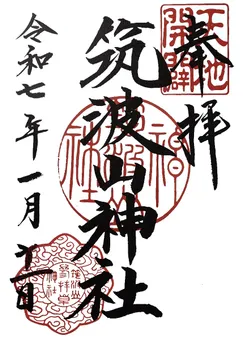 奉拝
天地
開闢
筑波山神社
令和七年一月十一日